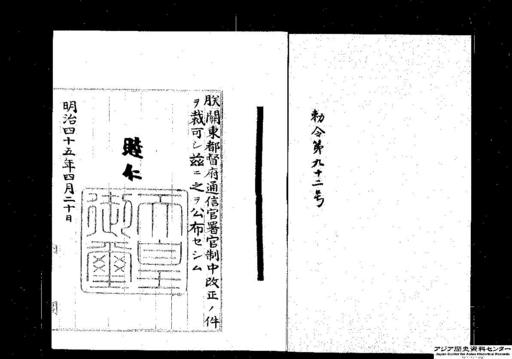 勅令第九十二号
朕關東都督府通信官署官制中改正ノ件
ヲ裁可シ茲ニ之ヲ公布セシム
睦仁
天皇
御璽
明治四十五年四月二十日
アジア歴史資料センター
Japan Center for Asian Historical Records